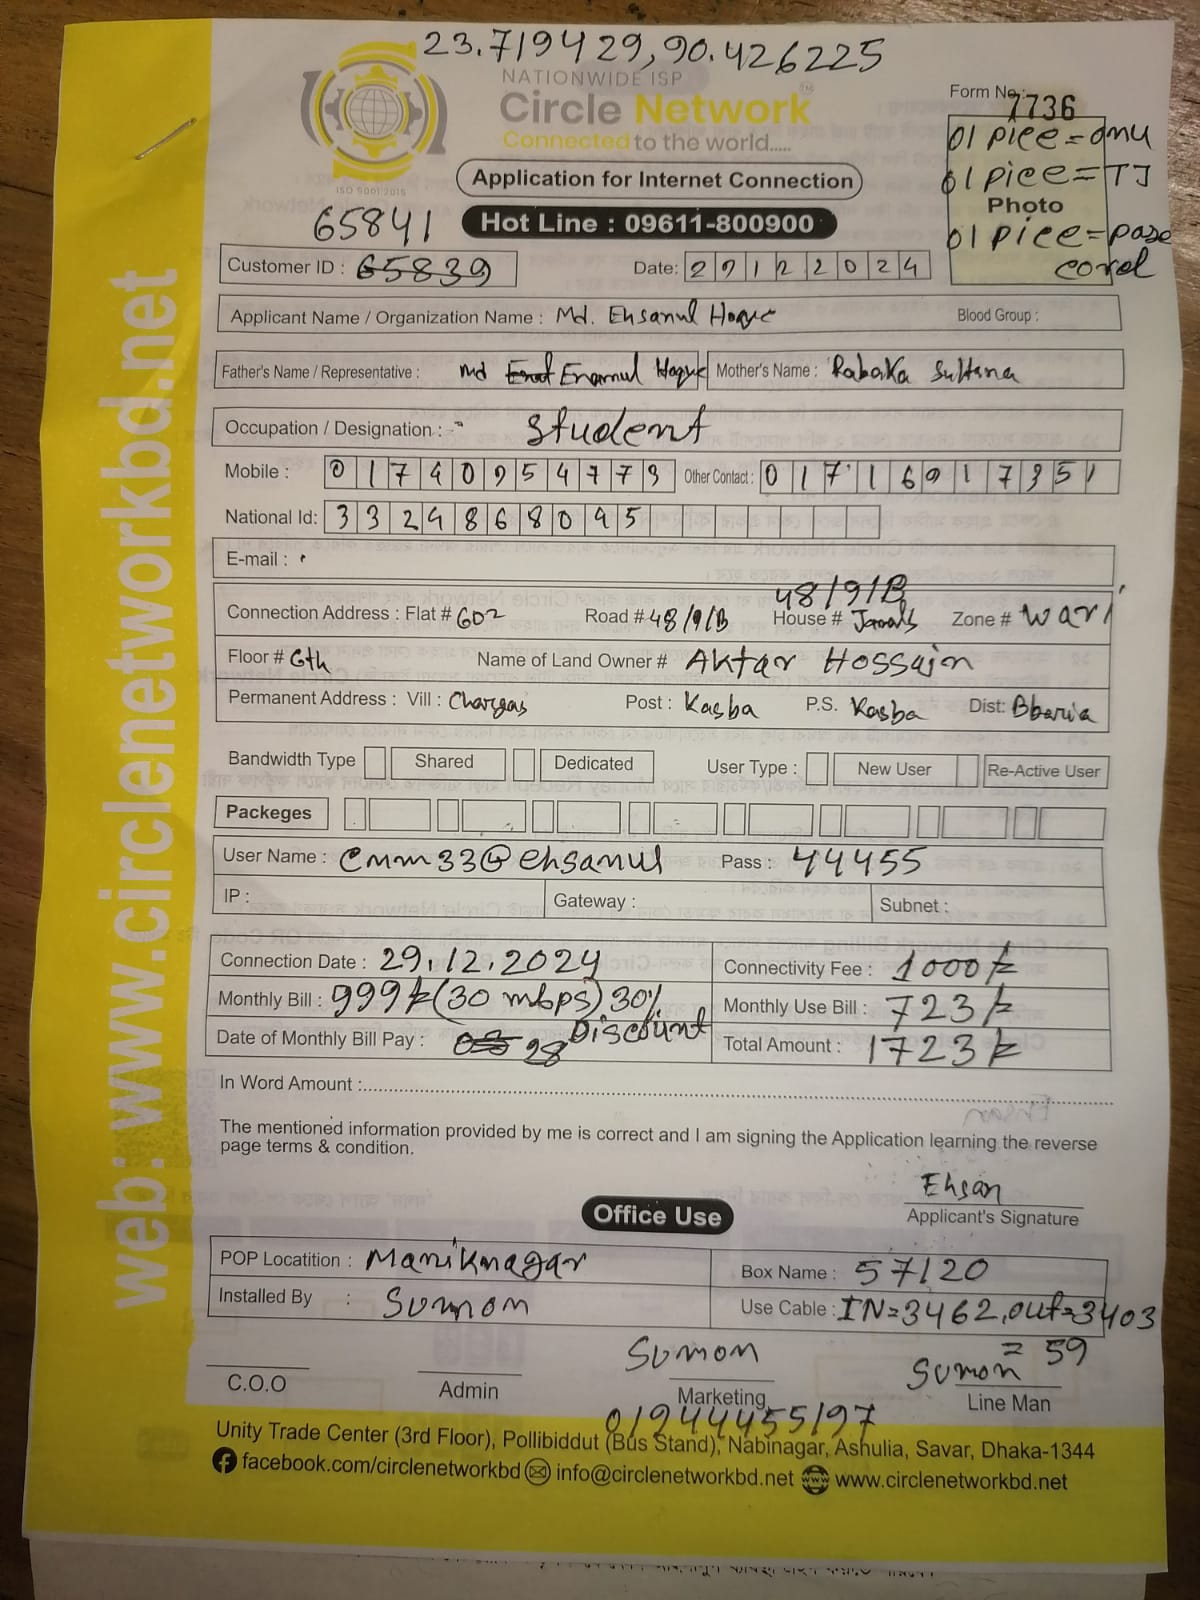 23.719429,90.426225
NATIONWIDE ISP
Circle Network
Connected to the world.....
ISO 9001:2015
Form No.: 7736
01 piee=onu
01 piee=TJ
Photo
01 piee=pase
corel
Application for Internet Connection
Hot Line : 09611-800900
65841
Customer ID : 65839
Date: 29122024
Applicant Name / Organization Name : Md. Ehsanul Hoque Blood Group :
Father's Name / Representative : Md Enamul Hoque Mother's Name : Rabaka Sultana
Occupation / Designation : Student
Mobile : 01740954773 Other Contact : 01716917351
National Id: 3324868045
E-mail :
48/9/B
Connection Address : Flat # 602 Road # 48/9/B House # Zone # Wari
Floor # 6th Name of Land Owner # Aktar Hossain
Permanent Address : Vill : Chargas Post : Kasba P.S. Kasba Dist: Bbaria
Bandwidth Type Shared Dedicated User Type : New User Re-Active User
Packeges
User Name : cmm33@ehsanul Pass : 44455
IP : Gateway : Subnet :
Connection Date : 29.12.2024 Connectivity Fee : 1000/=
Monthly Bill : 999/= (30 mbps) 30% Monthly Use Bill : 723/=
Discount
Date of Monthly Bill Pay : 28 Total Amount : 1723/=
In Word Amount :
The mentioned information provided by me is correct and I am signing the Application learning the reverse
page terms & condition.
Ehsan
Applicant's Signature
Office Use
POP Locatition : Maniknagar Box Name : 57120
Installed By : Sumon Use Cable : IN=3462,out=3403
= 59
Sumon Sumon
C.O.O Admin Marketing Line Man
01944455197
Unity Trade Center (3rd Floor), Pollibiddut (Bus Stand), Nabinagar, Ashulia, Savar, Dhaka-1344
facebook.com/circlenetworkbd info@circlenetworkbd.net www.circlenetworkbd.net
web: www.circlenetworkbd.net